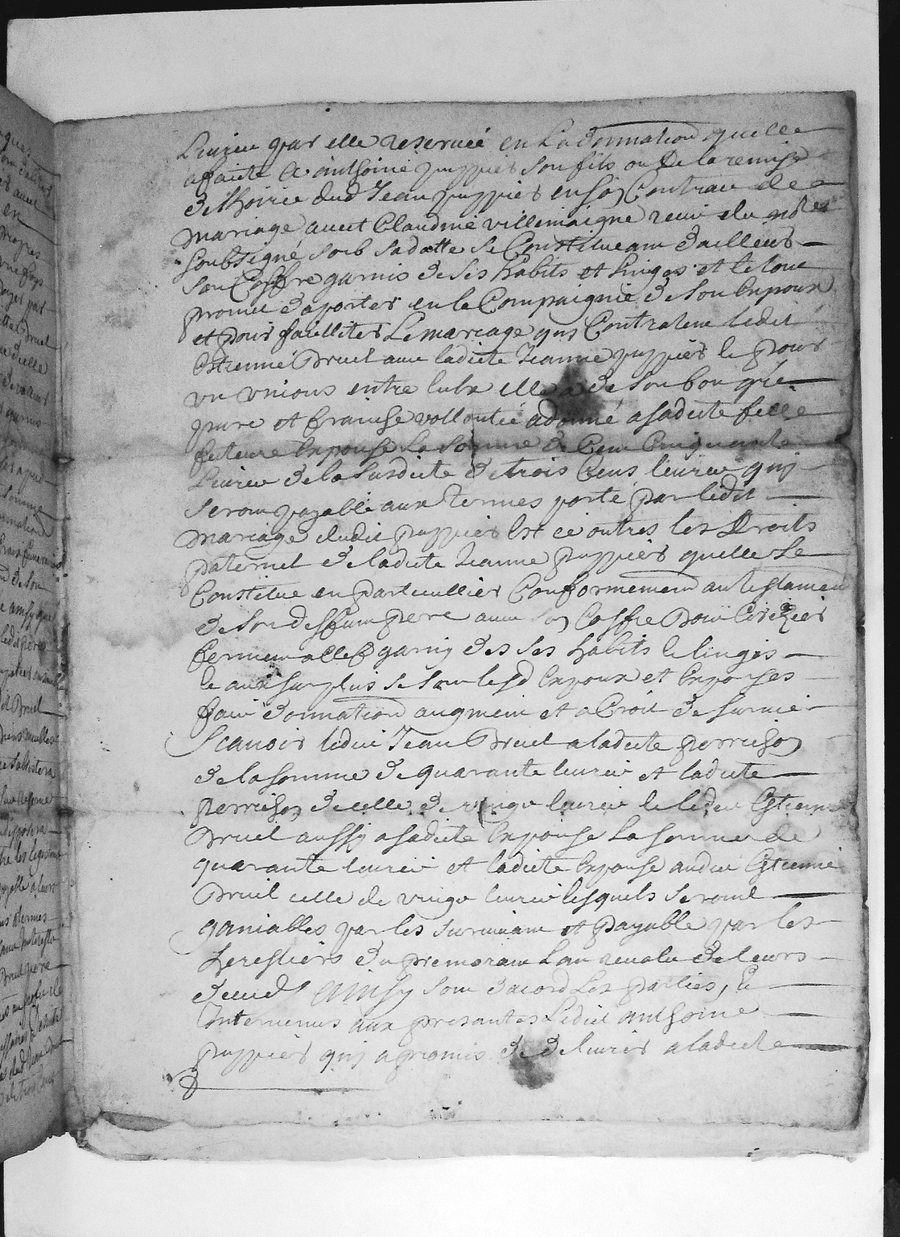 Livres par elle reservée en La donnation quelle
a faicte a anthoine puppier son fils ou de la remise
de lhoirie dud Jean puppier en son Contract de
mariage avect Claudine villemaigne receu du notre
soubsigné soub sadotte se Constitueant dailleurs
son Coffre garnis de ses habits et linges et le tout
promet daporter en le Compaignie de son Espoux
et pour facilliter Le mariage qui Contratent ledit
Estienne Druel avec ladicte Jeanne puppier le pour
un unions entre lubx elle a de son bon gré
pure et franche vollontée adonné a sadicte fille
future Espouse La somme de Cent Cinquante
Livres de la susdicte de trois Cens livres qui
seront payable aux termes porté par ledit
mariage dudit puppier Et ce outres les Droits
paternel de ladicte Jeanne puppier quelle se
Constitue en particullier Conformement au testament
de son deffunt pere avec son Coffre bois Cerizier
fermant a clef garny des ses habits le linges
le aux surplus se sont lesd Espoux et Espouses
fait donnation augment et a Croit de survie
Scavoir ledit Jean Druel a ladicte perrison
de la somme de quarante livres et ladicte
perrison de celle de vingt livres le ledit Estienne
Druel aussy a sadicte Espouse La somme de
quarante livres et ladicte Espouse audit Estienne
Druel celle de vingt livres lesquels seront
ganiables par les survivant et payable par les
heresties du premorant Lan revolu de leurs
deced ainsy sont dacord Les parties, Et
Intervenus aux presantes Ledict anthoine
puppier qui a promis de delivrer a ladicte